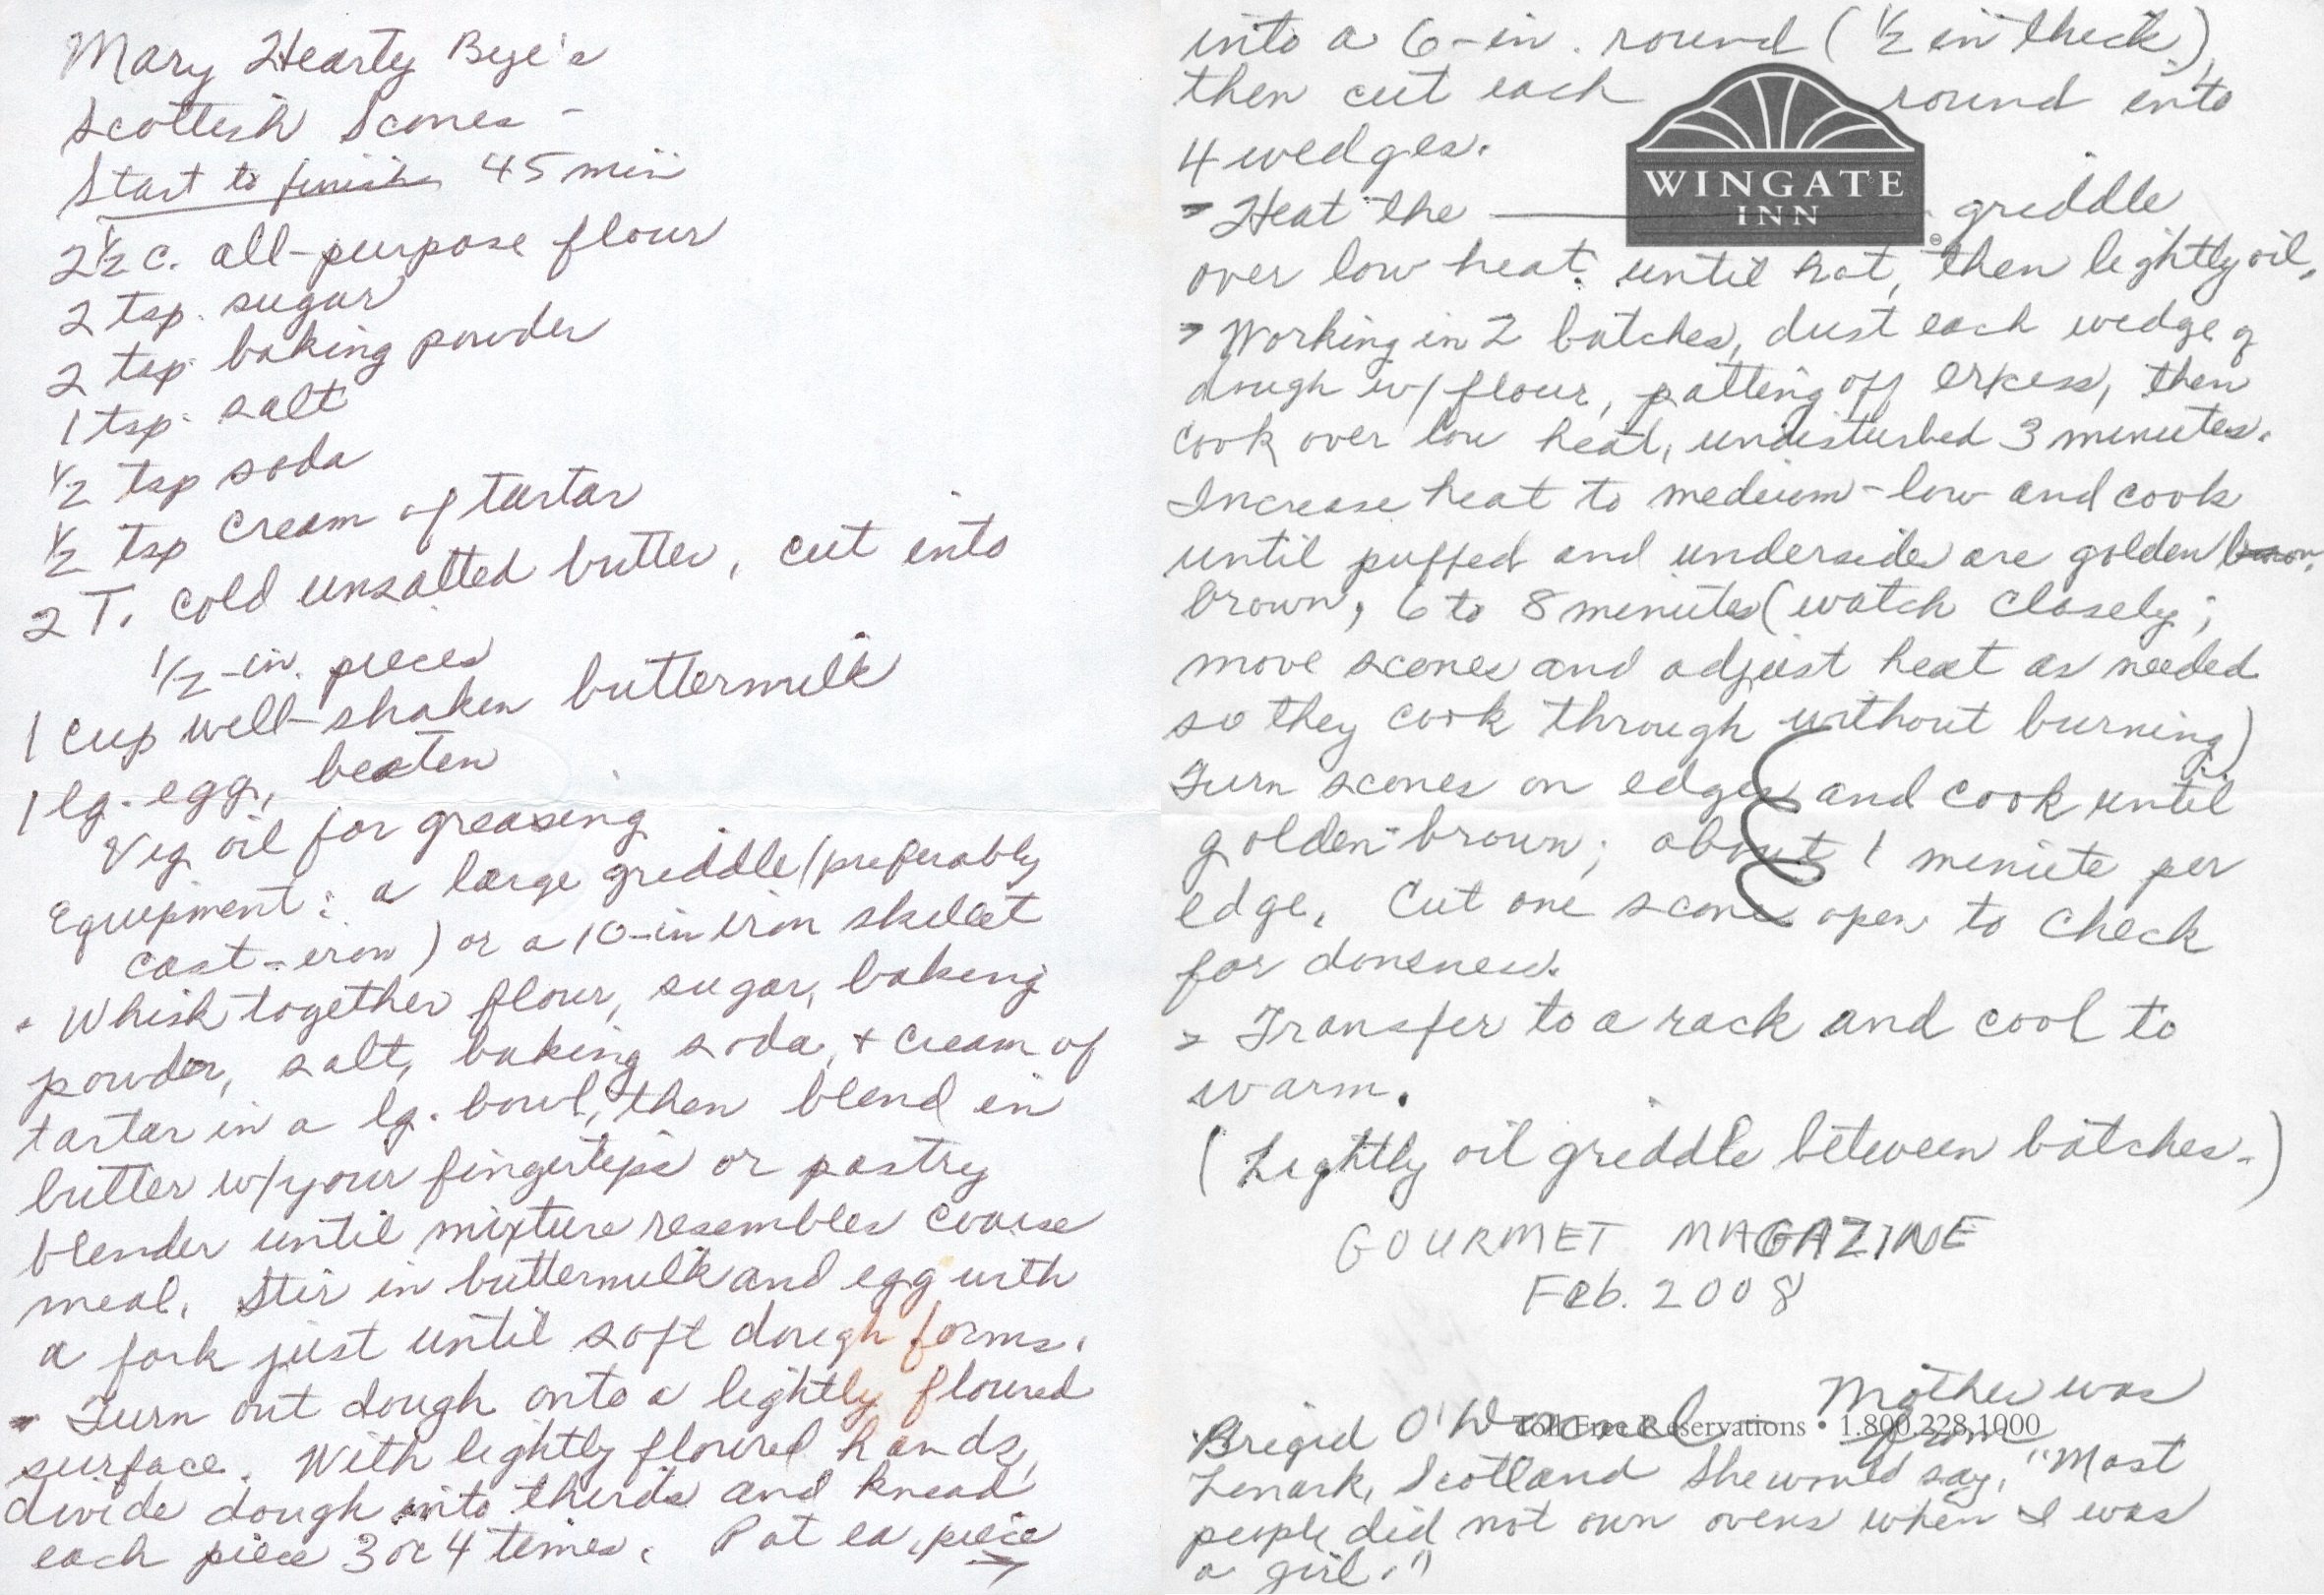 Mary Hearty Bye's
Scottish Scones -
Start to finish 45 min
2 1/2 c. all-purpose flour
2 tsp. sugar
2 tsp. baking powder
1 tsp. salt
1/2 tsp soda
1/2 tsp cream of tartar
2 T. cold unsalted butter, cut into
1/2-in. pieces
1 cup well-shaken buttermilk
1 lg. egg, beaten
Veg. oil for greasing
Equipment: a large griddle (preferably
cast-iron) or a 10-in iron skillet
• Whisk together flour, sugar, baking
powder, salt, baking soda, + cream of
tartar in a lg. bowl, then blend in
butter w/your fingertips or pastry
blender until mixture resembles coarse
meal. Stir in buttermilk and egg with
a fork just until soft dough forms.
- Turn out dough onto a lightly floured
surface. With lightly floured hands,
divide dough into thirds and knead
each piece 3 or 4 times. Pat ea. piece →
into a 6-in. round (1/2 in thick)
then cut each round into
4 wedges.
WINGATE
INN
- Heat the griddle
over low heat until hot, then lightly oil.
- Working in 2 batches, dust each wedge of
dough w/ flour, patting off excess, then
cook over low heat, undisturbed 3 minutes.
Increase heat to medium-low and cook
until puffed and underside are golden
brown, 6 to 8 minutes (watch closely;
move scones and adjust heat as needed
so they cook through without burning)
Turn scones on edges and cook until
golden-brown; about 1 minute per
edge. Cut one scone open to check
for doneness.
- Transfer to a rack and cool to
warm.
(Lightly oil griddle between batches.)
GOURMET MAGAZINE
Feb. 2008
Brigid Mother was
Toll Free Reservations • 1.800.228.1000
from
Lenark, Scotland She would say, "Most
people did not own ovens when I was
a girl."